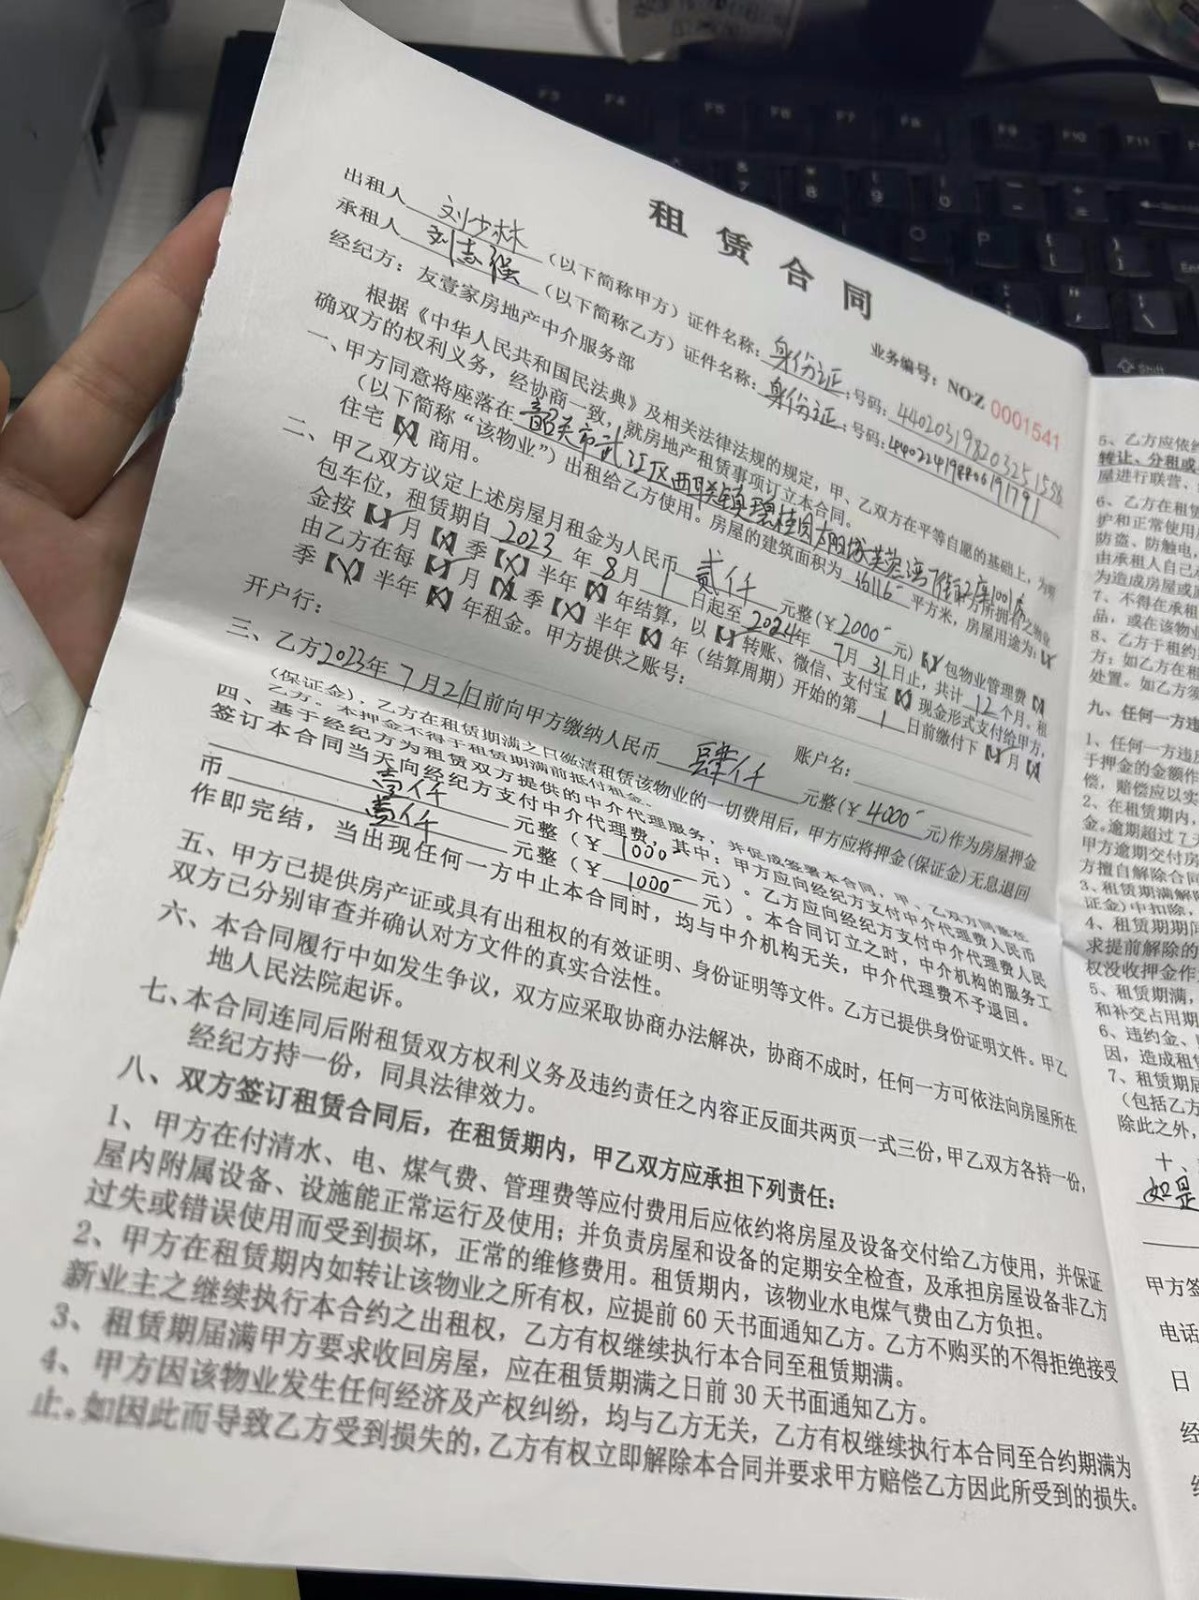 租赁合同
业务编号：NO:Z 0001541
出租人 刘少林 （以下简称甲方）证件名称：身份证；号码：440203198203251558
承租人 刘志强 （以下简称乙方）证件名称：身份证；号码：440224198806191791
经纪方：友壹家房地产中介服务部
根据《中华人民共和国民法典》及相关法律法规的规定，甲、乙双方在平等自愿的基础上，为明
确双方的权利义务，经协商一致，就房地产租赁事项订立本合同。
一、甲方同意将座落在 韶关市武江区西联镇碧桂园太阳城芙蓉湾 2座1001房 甲方所拥有之物业
（以下简称“该物业”）出租给乙方使用。房屋的建筑面积为 约116 平方米，房屋用途为：【√】
住宅【X】商用。
二、甲乙双方议定上述房屋月租金为人民币 贰仟 元整（￥2000 元）【X】包物业管理费【X】
包车位，租赁期自 2023 年 8 月 1 日起至 2024 年 7 月 31 日止，共计 12 个月，租
金按【√】月【X】季【X】半年【X】年结算，以【√】转账、微信、支付宝【X】现金形式支付给甲方，
由乙方在每【√】月【X】季【X】半年【X】年（结算周期）开始的第 1 日前缴付下【√】月【X】
季【X】半年【X】年租金。甲方提供之账号：
开户行： 账户名：
三、乙方2023年7月21日前向甲方缴纳人民币 肆仟 元整（￥4000 元）作为房屋押金
（保证金），乙方在租赁期满之日缴清租赁该物业的一切费用后，甲方应将押金（保证金）无息退回
乙方。本押金不得于租赁期满前抵付租金。
四、基于经纪方为租赁双方提供的中介代理服务，并促成签署本合同，甲、乙双方同意在
签订本合同当天向经纪方支付中介代理费，其中：甲方应向经纪方支付中介代理费人民币
壹仟 元整（￥1000 元）。乙方应向经纪方支付中介代理费人民
币 壹仟 元整（￥1000 元）。本合同订立之时，中介机构的服务工
作即完结，当出现任何一方中止本合同时，均与中介机构无关，中介代理费不予退回。
五、甲方已提供房产证或具有出租权的有效证明、身份证明等文件。乙方已提供身份证明文件。甲乙
双方已分别审查并确认对方文件的真实合法性。
六、本合同履行中如发生争议，双方应采取协商办法解决，协商不成时，任何一方可依法向房屋所在
地人民法院起诉。
七、本合同连同后附租赁双方权利义务及违约责任之内容正反面共两页一式三份，甲乙双方各持一份，
经纪方持一份，同具法律效力。
八、双方签订租赁合同后，在租赁期内，甲乙双方应承担下列责任：
1、甲方在付清水、电、煤气费、管理费等应付费用后应依约将房屋及设备交付给乙方使用，并保证
屋内附属设备、设施能正常运行及使用；并负责房屋和设备的定期安全检查，及承担房屋设备非乙方
过失或错误使用而受到损坏，正常的维修费用。租赁期内，该物业水电煤气费由乙方负担。
2、甲方在租赁期内如转让该物业之所有权，应提前60天书面通知乙方。乙方不购买的不得拒绝接受
新业主之继续执行本合约之出租权，乙方有权继续执行本合同至租赁期满。
3、租赁期届满甲方要求收回房屋，应在租赁期满之日前30天书面通知乙方。
4、甲方因该物业发生任何经济及产权纠纷，均与乙方无关，乙方有权继续执行本合同至合约期满为
止。如因此而导致乙方受到损失的，乙方有权立即解除本合同并要求甲方赔偿乙方因此所受到的损失。
5、乙方应依约
转让、分租或
屋进行联营、
6、乙方在租赁
护和正常使用
防盗、防触电，
由承租人自己承
为造成房屋或
7、不得在承租
品，或在该物业
8、乙方于租约
方；如乙方在租
处置。如乙方须
九、任何一方违
1、任何一方违反
于押金的金额作
偿，赔偿应以实
2、在租赁期内，
金。逾期超过7天
甲方逾期交付房
方擅自解除合同
3、租赁期满解除
证金）中扣除，
4、租赁期期间
求提前解除的
权没收押金作
5、租赁期满，
和补交占用期
6、违约金、
因，造成租赁
7、租赁期届
（包括乙方
除此之外，
十、
如是
甲方签
电话
日
经